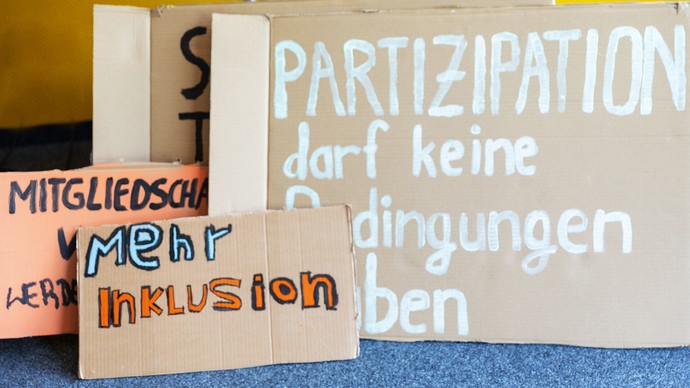 PARTIZIPATION
darf keine
Bedingungen
haben
MITGLIEDSCHA
WERDE
Mehr
INKLUSion